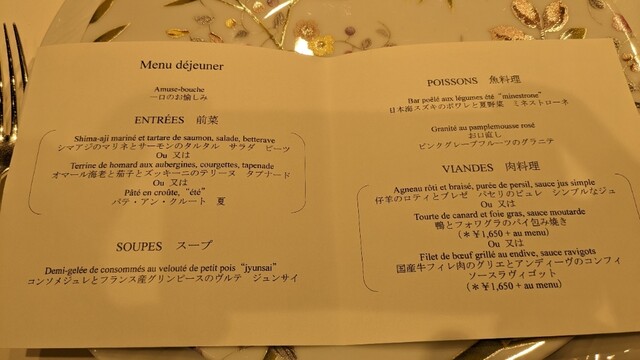 Menu déjeuner
Amuse-bouche
一口のお愉しみ
ENTRÉES 前菜
Shima-aji mariné et tartare de saumon, salade, betterave
シマアジのマリネとサーモンのタルタル サラダ ビーツ
Ou 又は
Terrine de homard aux aubergines, courgettes, tapenade
オマール海老と茄子とズッキーニのテリーヌ タプナード
Ou 又は
Pâté en croûte, “été”
パテ・アン・クルート 夏
SOUPES スープ
Demi-gelée de consommés au velouté de petit pois “jyunsai”
コンソメジュレとフランス産グリンピースのヴルテ ジュンサイ
POISSONS 魚料理
Bar poêlé aux légumes été “minestrone”
日本海スズキのポワレと夏野菜 ミネストローネ
Granité au pamplemousse rosé
お口直し
ピンクグレープフルーツのグラニテ
VIANDES 肉料理
Agneau rôti et braisé, purée de persil, sauce jus simple
仔羊のロティとブレゼ パセリのピュレ シンプルなジュ
Ou 又は
Tourte de canard et foie gras, sauce moutarde
鴨とフォワグラのパイ包み焼き
(＊￥1,650 + au menu)
Ou 又は
Filet de bœuf grillé au endive, sauce ravigots
国産牛フィレ肉のグリエとアンディーヴのコンフィ
ソースラヴィゴット
(＊￥1,650 + au menu)